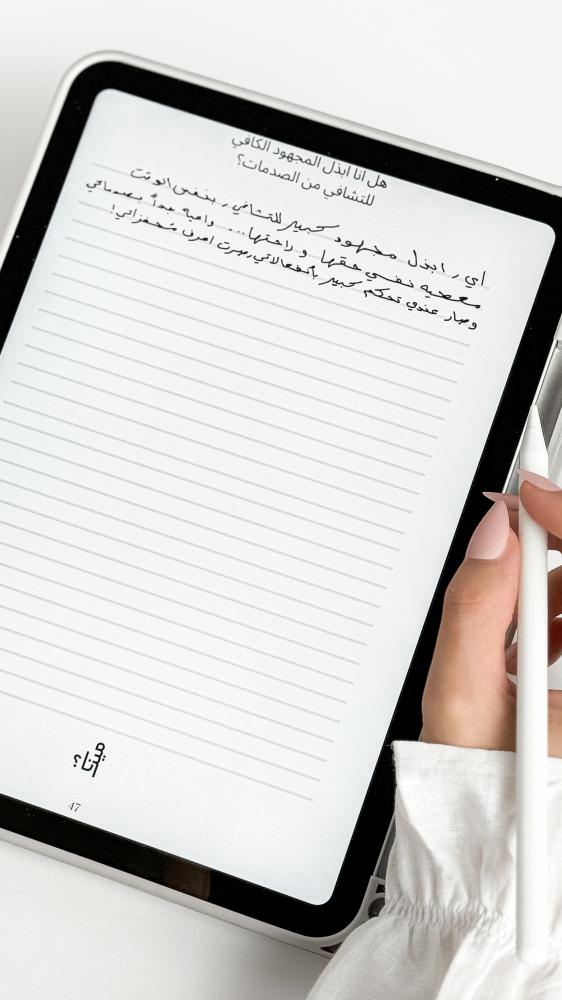 هل انا ابذل المجهود الكافي
للتشافي من الصدمات؟
اي، ابذل مجهود كبير للتشافي، بنفس الوقت
معطيه نفسي حقها و راحتها... واعيه جداً بصدماتي
وصار عندي تحكم كبير بانفعالاتي، صرت اعرف محفزاتي!
مين
أنا؟
47